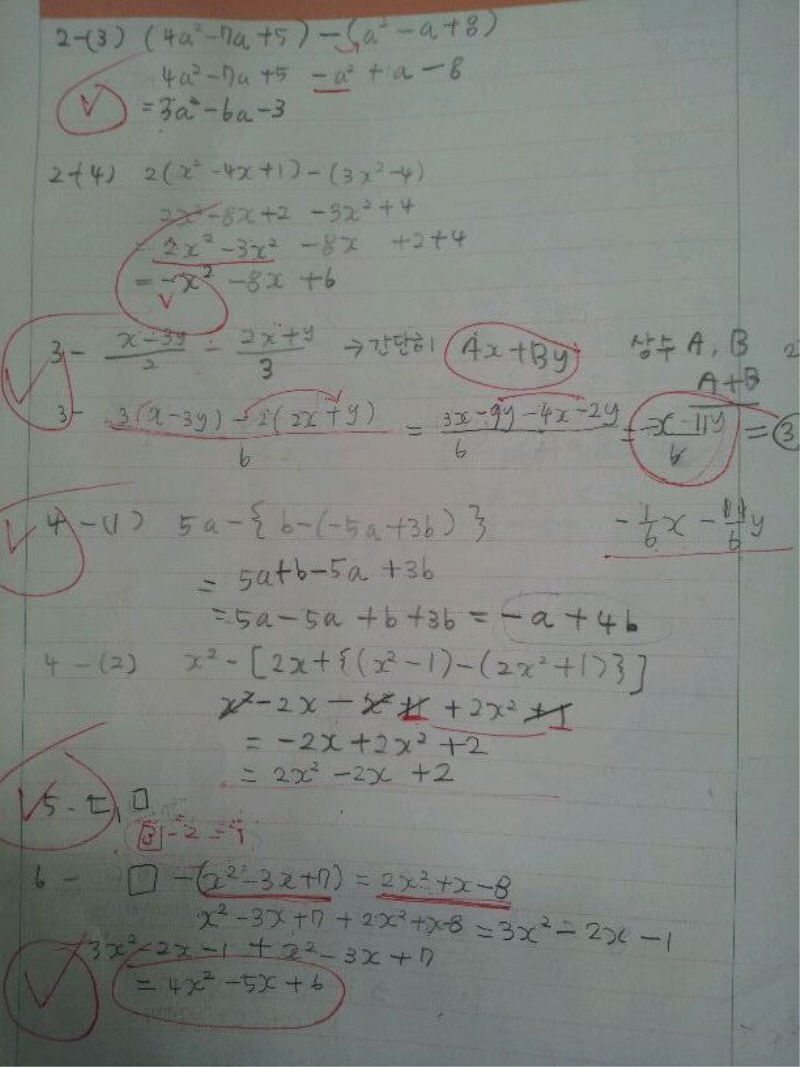 2-(3) (4a²-7a+5)-(a²-a+8)
4a²-7a+5 -a²+a-8
=3a²-6a-3
2-(4) 2(x²-4x+1)-(3x²-4)
2x²-8x+2 -3x²+4
= 2x²-3x² -8x +2+4
= -x² -8x +6
3- (x-3y)/2 - (2x+y)/3 → 간단히 Ax+By 상수 A, B
A+B
3- (3(x-3y)-2(2x+y))/6 = (3x-9y-4x-2y)/6 = (-x-11y)/6 = ③
-1/6x - 11/6y
4-(1) 5a-{b-(-5a+3b)}
= 5a+b-5a+3b
=5a-5a+b+3b = -a+4b
4-(2) x²-[2x+{(x²-1)-(2x²+1)}]
x²-2x-x²+1+2x²+1
= -2x+2x²+2
= 2x²-2x+2
5- ㄷ, ㅁ
6- □-(x²-3x+7)=2x²+x-8
x²-3x+7+2x²+x-8=3x²-2x-1
3x²-2x-1+x²-3x+7
=4x²-5x+6